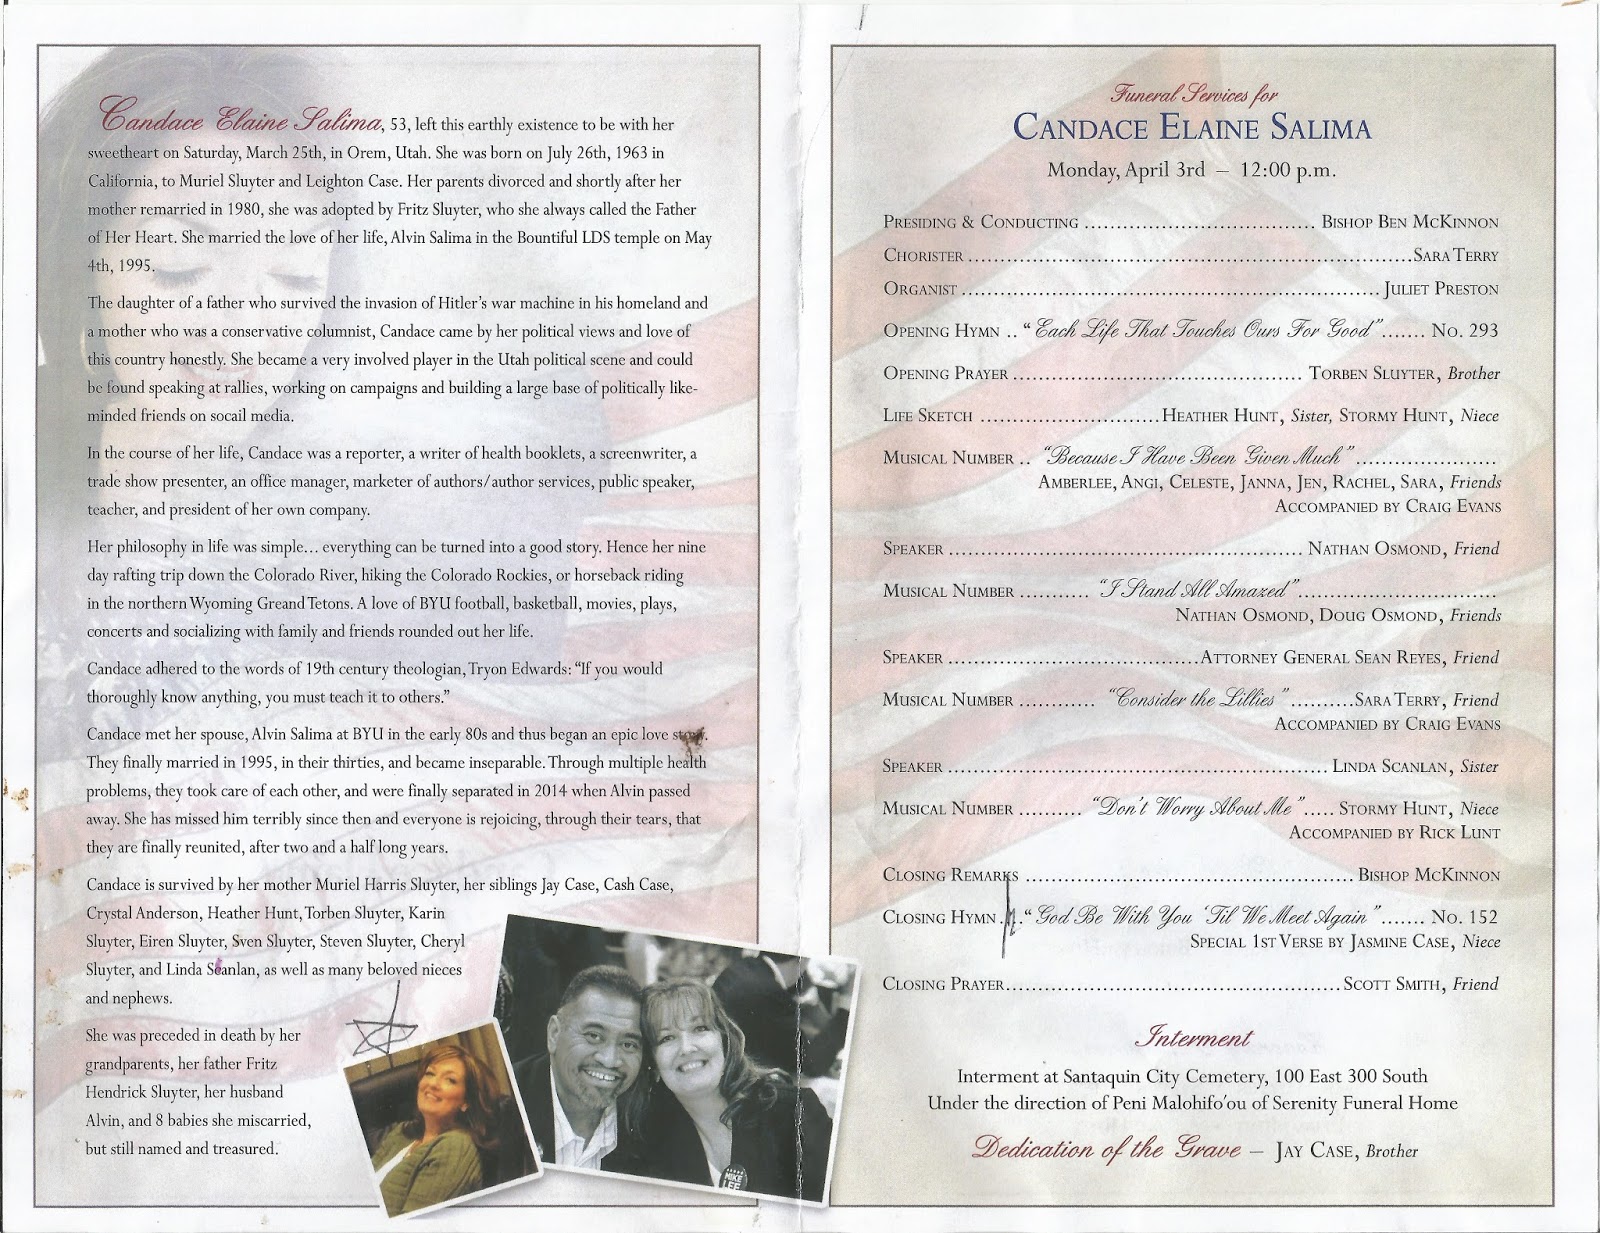 Candace Elaine Salima, 53, left this earthly existence to be with her
sweetheart on Saturday, March 25th, in Orem, Utah. She was born on July 26th, 1963 in
California, to Muriel Sluyter and Leighton Case. Her parents divorced and shortly after her
mother remarried in 1980, she was adopted by Fritz Sluyter, who she always called the Father
of Her Heart. She married the love of her life, Alvin Salima in the Bountiful LDS temple on May
4th, 1995.
The daughter of a father who survived the invasion of Hitler's war machine in his homeland and
a mother who was a conservative columnist, Candace came by her political views and love of
this country honestly. She became a very involved player in the Utah political scene and could
be found speaking at rallies, working on campaigns and building a large base of politically like-
minded friends on socail media.
In the course of her life, Candace was a reporter, a writer of health booklets, a screenwriter, a
trade show presenter, an office manager, marketer of authors/author services, public speaker,
teacher, and president of her own company.
Her philosophy in life was simple... everything can be turned into a good story. Hence her nine
day rafting trip down the Colorado River, hiking the Colorado Rockies, or horseback riding
in the northern Wyoming Greand Tetons. A love of BYU football, basketball, movies, plays,
concerts and socializing with family and friends rounded out her life.
Candace adhered to the words of 19th century theologian, Tryon Edwards: "If you would
thoroughly know anything, you must teach it to others."
Candace met her spouse, Alvin Salima at BYU in the early 80s and thus began an epic love story.
They finally married in 1995, in their thirties, and became inseparable. Through multiple health
problems, they took care of each other, and were finally separated in 2014 when Alvin passed
away. She has missed him terribly since then and everyone is rejoicing, through their tears, that
they are finally reunited, after two and a half long years.
Candace is survived by her mother Muriel Harris Sluyter, her siblings Jay Case, Cash Case,
Crystal Anderson, Heather Hunt, Torben Sluyter, Karin
Sluyter, Eiren Sluyter, Sven Sluyter, Steven Sluyter, Cheryl
Sluyter, and Linda Scanlan, as well as many beloved nieces
and nephews.
She was preceded in death by her
grandparents, her father Fritz
Hendrick Sluyter, her husband
Alvin, and 8 babies she miscarried,
but still named and treasured.
MIKE
LEE
Funeral Services for
CANDACE ELAINE SALIMA
Monday, April 3rd – 12:00 p.m.
PRESIDING & CONDUCTING ........ BISHOP BEN MCKINNON
CHORISTER ........ SARA TERRY
ORGANIST ........ JULIET PRESTON
OPENING HYMN .. "Each Life That Touches Ours For Good" ....... NO. 293
OPENING PRAYER ........ TORBEN SLUYTER, Brother
LIFE SKETCH ........ HEATHER HUNT, Sister, STORMY HUNT, Niece
MUSICAL NUMBER .. "Because I Have Been Given Much" ........
AMBERLEE, ANGI, CELESTE, JANNA, JEN, RACHEL, SARA, Friends
ACCOMPANIED BY CRAIG EVANS
SPEAKER ........ NATHAN OSMOND, Friend
MUSICAL NUMBER ........ "I Stand All Amazed" ........
NATHAN OSMOND, DOUG OSMOND, Friends
SPEAKER ........ ATTORNEY GENERAL SEAN REYES, Friend
MUSICAL NUMBER ........ "Consider the Lillies" ........ SARA TERRY, Friend
ACCOMPANIED BY CRAIG EVANS
SPEAKER ........ LINDA SCANLAN, Sister
MUSICAL NUMBER ........ "Don't Worry About Me" ..... STORMY HUNT, Niece
ACCOMPANIED BY RICK LUNT
CLOSING REMARKS ........ BISHOP MCKINNON
CLOSING HYMN ... "God Be With You 'Til We Meet Again" ....... NO. 152
SPECIAL 1ST VERSE BY JASMINE CASE, Niece
CLOSING PRAYER ........ SCOTT SMITH, Friend
Interment
Interment at Santaquin City Cemetery, 100 East 300 South
Under the direction of Peni Malohifo'ou of Serenity Funeral Home
Dedication of the Grave – JAY CASE, Brother